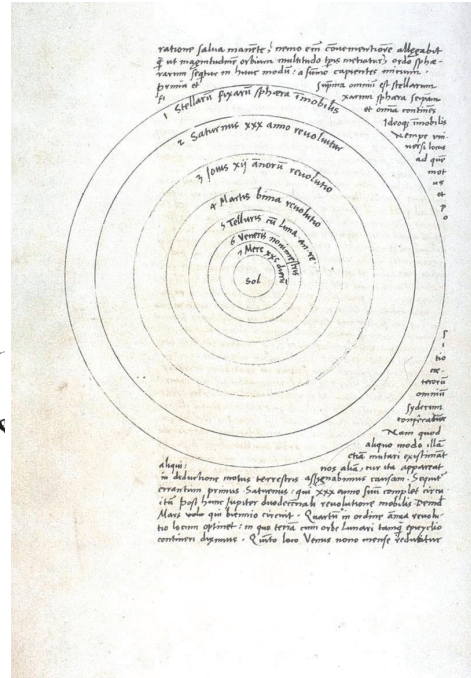 ratione salua manēte, nemo em̄ conuenientiorē allegabit
q̄ ut magnitudinē orbium multitudo tp̄is metiatur, ordo sphæ-
rarum seqtur in hunc modū: a sūmo capientes initium.
prima et suprema omniū est stellarum
fi xarum sphæra seipsam
et omnia continēs
Ideoq; īmobilis
Nempe vni-
uersi locus
ad quē
mot
us
et
p
o
1 Stellarū fixarū sphæra īmobilis
2 Saturnus xxx anno reuoluitur
3 Iouis xij annorū reuolutio
4 Martis bima reuolutio
5 Telluris cū Luna. an. re.
6 Veneris nonimestris
7 Merc xxc dierū
Sol
s
i
tio
cæ-
terorū
omniū
syderum
conferatur
Nam quod
aliquo modo illā
etiā mutari existimāt
aliqui: nos aliā, cur ita appareat
in deductione motus terrestris assignabimus causam. Sequit
errantium primus Saturnus: qui xxx anno suū complet circu
itū post hunc Iupiter duodecennali reuolutione mobilis Demū
Mars volo qui biennio circuit. Quartū in ordine annua reuolu-
tio locum optinet: in quo terrā cum orbe lunari tamq̄ epicyclio
contineri diximus. Quīto loco Venus nono mense reducitur